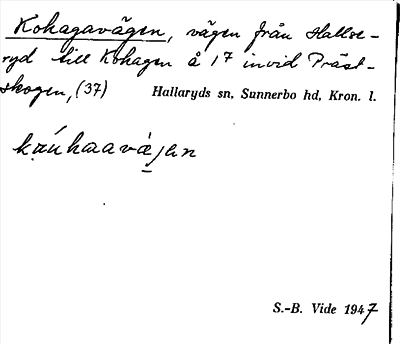 Kohagavägen, vägen från Hallse-
ryd till Kohagen å 17 invid Präst-
skogen, (37) Hallaryds sn, Sunnerbo hd, Kron. l.
S.-B. Vide 1947